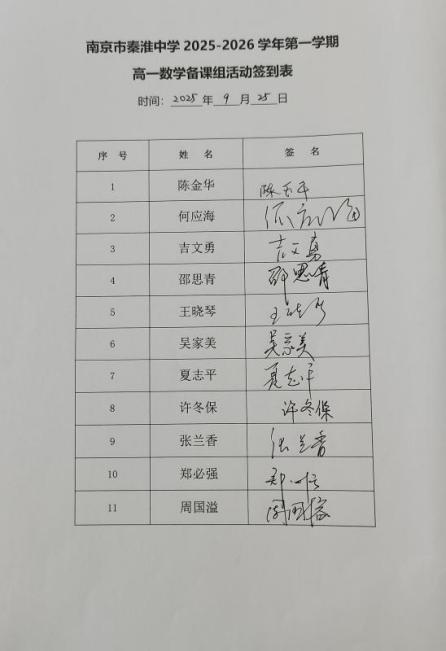 南京市秦淮中学 2025-2026 学年第一学期
高一数学备课组活动签到表
时间： 2025 年 9 月 25 日
序 号 姓 名 签 名
1 陈金华
2 何应海 何应海
3 吉文勇 吉文勇
4 邵思青 邵思青
5 王晓琴 王晓琴
6 吴家美 吴家美
7 夏志平 夏志平
8 许冬保 许冬保
9 张兰香 张兰香
10 郑必强
11 周国溢 周国溢